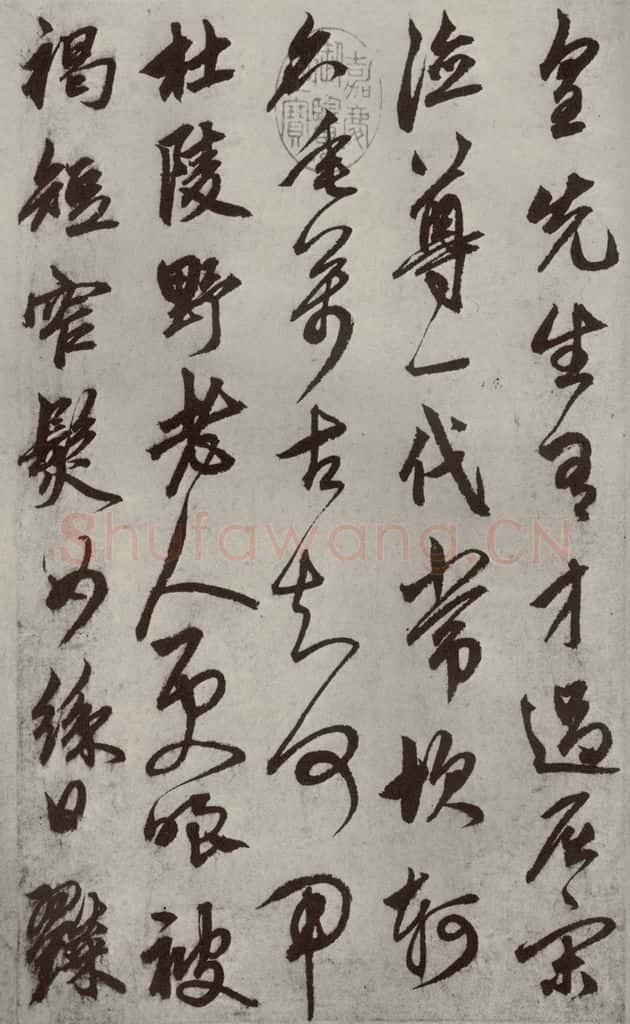 皇先生有才過屈宋
德尊一代常坎軻
名垂萬古知何用
杜陵野老人更嗤被
褐短窄鬢如絲日糴
嘉慶御覽之寶
Shufawang.CN